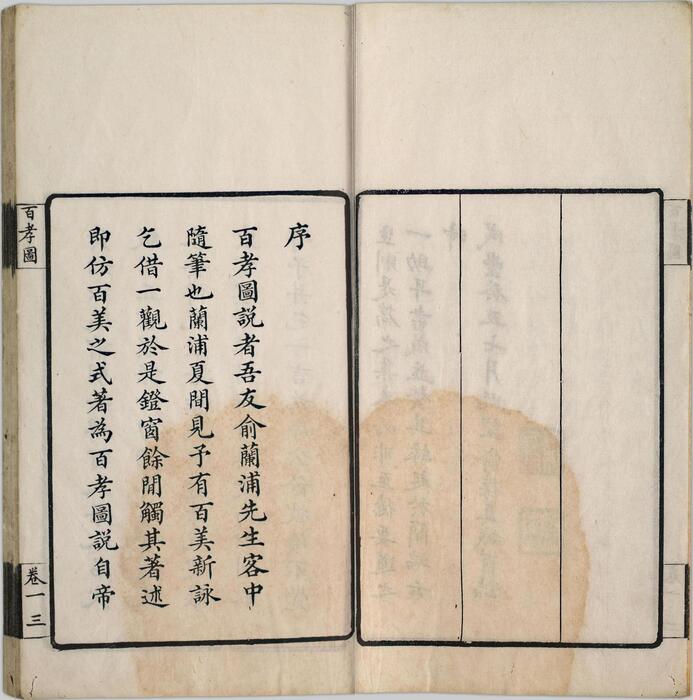 序
百孝圖説者吾友俞蘭浦先生客中
隨筆也蘭浦夏間見予有百美新詠
乞借一觀於是鐙窗餘閒觸其著述
即仿百美之式著為百孝圖説自帝
百孝圖
卷一 三